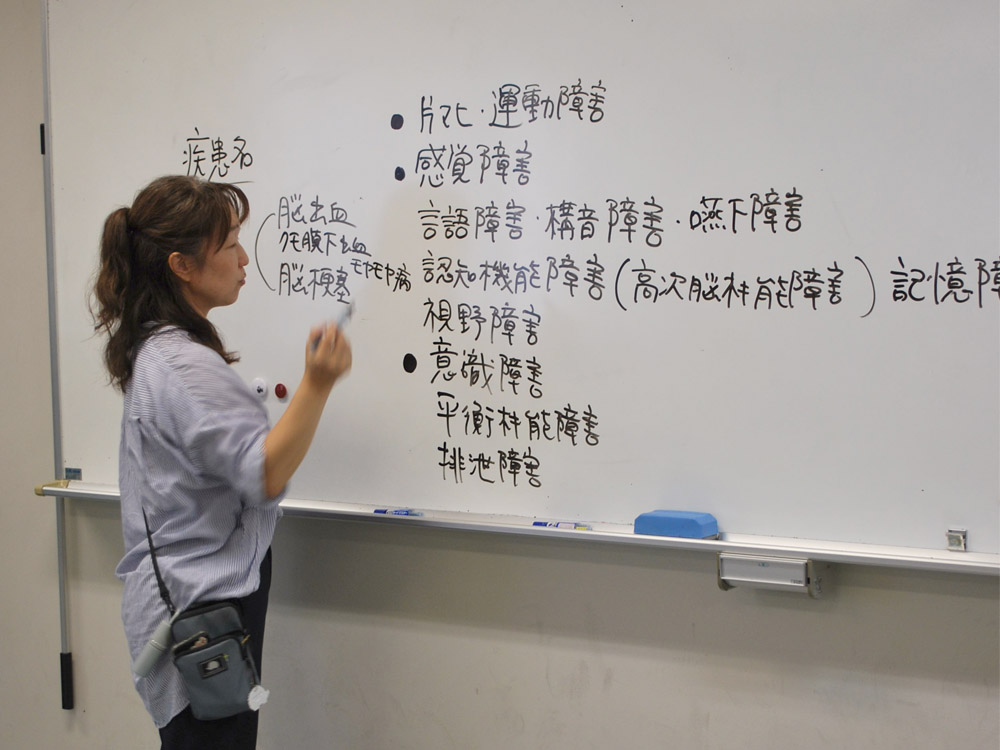 疾患名
脳出血
クモ膜下出血
モヤモヤ病
脳梗塞
片マヒ・運動障害
感覚障害
言語障害・構音障害・嚥下障害
認知機能障害(高次脳機能障害) 記憶障
視野障害
意識障害
平衡機能障害
排泄障害